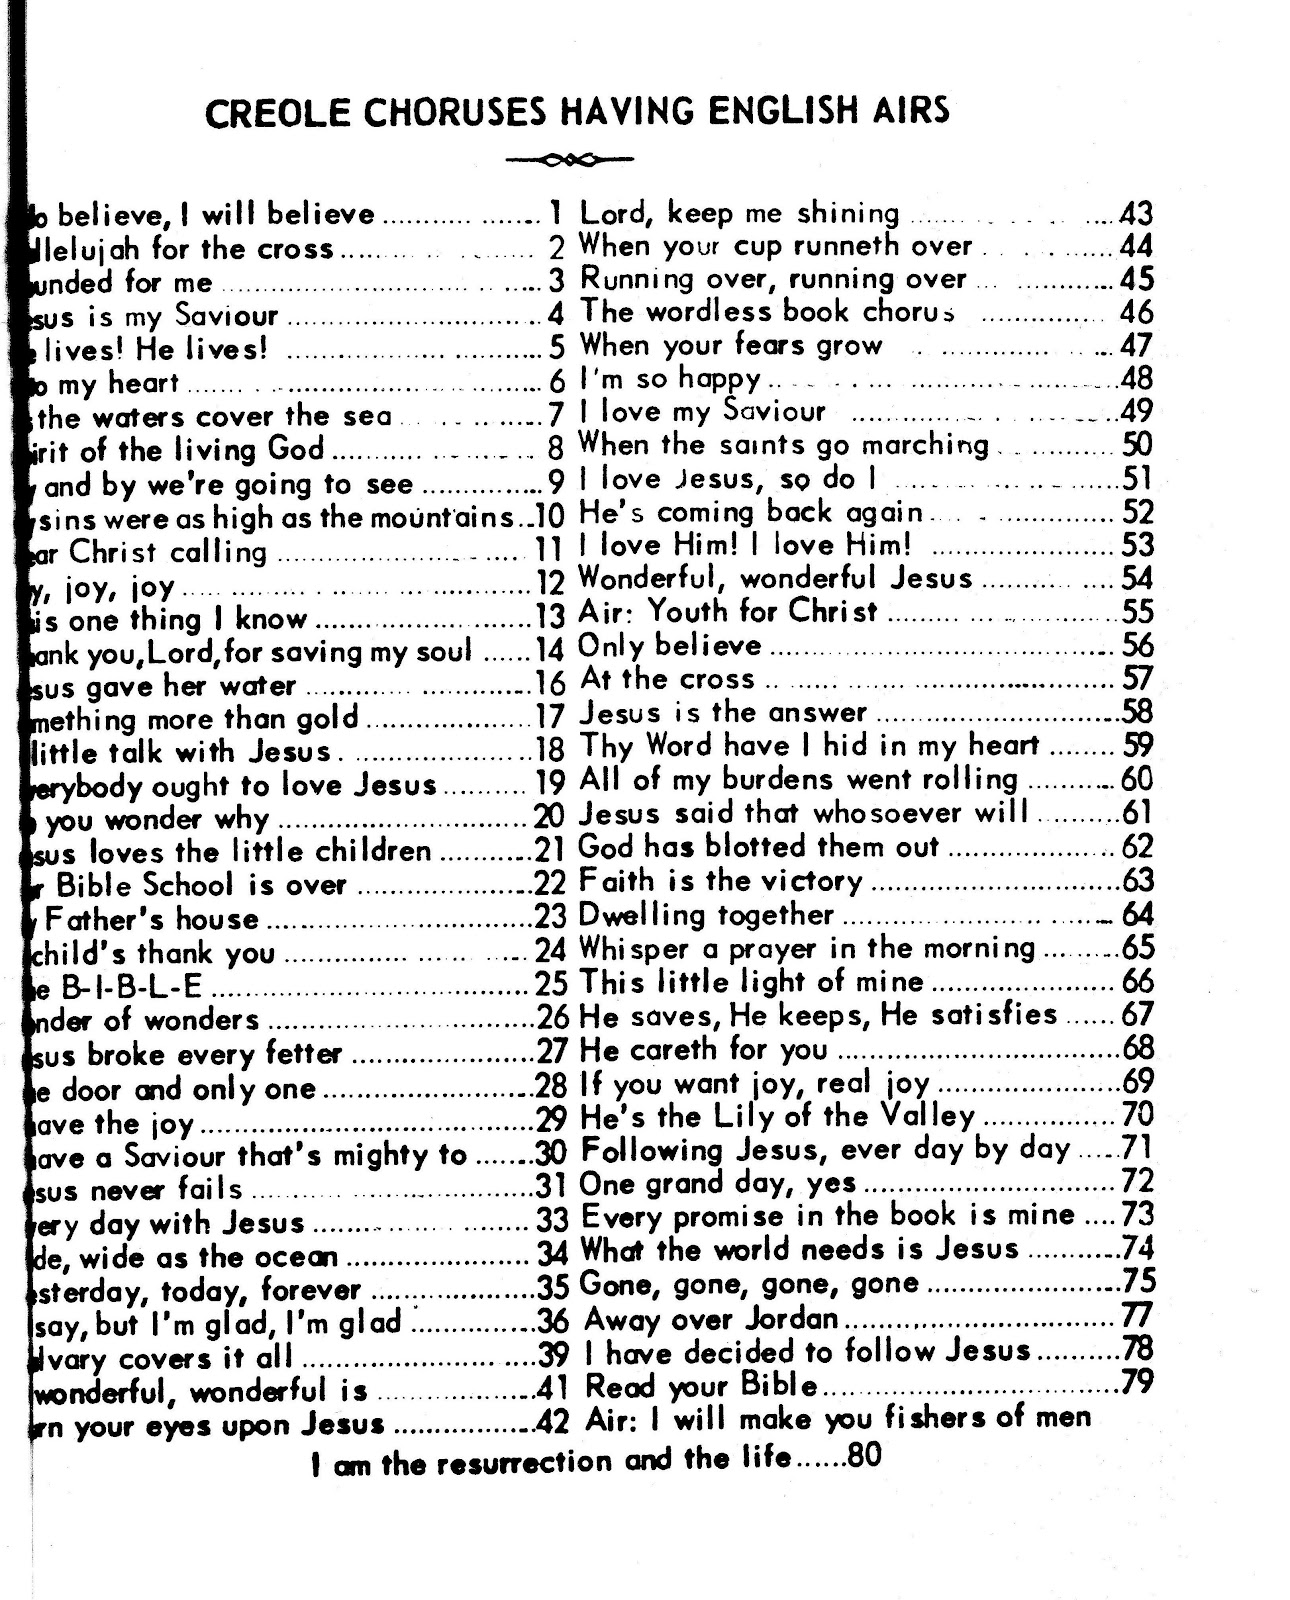 CREOLE CHORUSES HAVING ENGLISH AIRS
believe, I will believe 1
llelujah for the cross 2
unded for me 3
sus is my Saviour 4
lives! He lives! 5
my heart 6
the waters cover the sea 7
irit of the living God 8
and by we're going to see 9
sins were as high as the mountains 10
ar Christ calling 11
y, joy, joy 12
is one thing I know 13
ank you, Lord, for saving my soul 14
sus gave her water 16
mething more than gold 17
little talk with Jesus 18
erybody ought to love Jesus 19
you wonder why 20
sus loves the little children 21
r Bible School is over 22
Father's house 23
child's thank you 24
e B-I-B-L-E 25
nder of wonders 26
sus broke every fetter 27
e door and only one 28
ave the joy 29
ave a Saviour that's mighty to 30
sus never fails 31
ery day with Jesus 33
de, wide as the ocean 34
sterday, today, forever 35
say, but I'm glad, I'm glad 36
lvary covers it all 39
wonderful, wonderful is 41
rn your eyes upon Jesus 42
Lord, keep me shining 43
When your cup runneth over 44
Running over, running over 45
The wordless book chorus 46
When your fears grow 47
I'm so happy 48
I love my Saviour 49
When the saints go marching 50
I love Jesus, so do I 51
He's coming back again 52
I love Him! I love Him! 53
Wonderful, wonderful Jesus 54
Air: Youth for Christ 55
Only believe 56
At the cross 57
Jesus is the answer 58
Thy Word have I hid in my heart 59
All of my burdens went rolling 60
Jesus said that whosoever will 61
God has blotted them out 62
Faith is the victory 63
Dwelling together 64
Whisper a prayer in the morning 65
This little light of mine 66
He saves, He keeps, He satisfies 67
He careth for you 68
If you want joy, real joy 69
He's the Lily of the Valley 70
Following Jesus, ever day by day 71
One grand day, yes 72
Every promise in the book is mine 73
What the world needs is Jesus 74
Gone, gone, gone, gone 75
Away over Jordan 77
I have decided to follow Jesus 78
Read your Bible 79
Air: I will make you fishers of men
I am the resurrection and the life 80